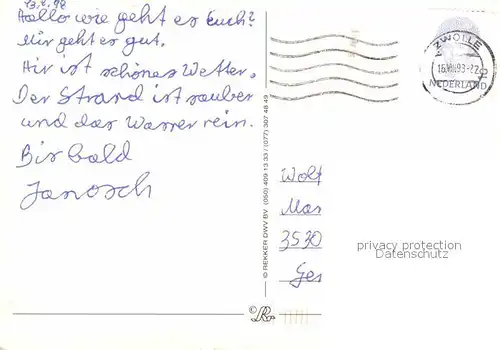 Hallo wie geht es Euch?
Mir geht es gut.
Hir ist schönes Wetter.
Der Strand ist sauber
und das Wasser rein.
Bis bald
Janosch
© REKKER DWV BV (050) 409 13 33 / (077) 307 48 49
ZWOLLE
NEDERLAND
Wolf
Mar
3530
Ges
privacy protection
Datenschutz